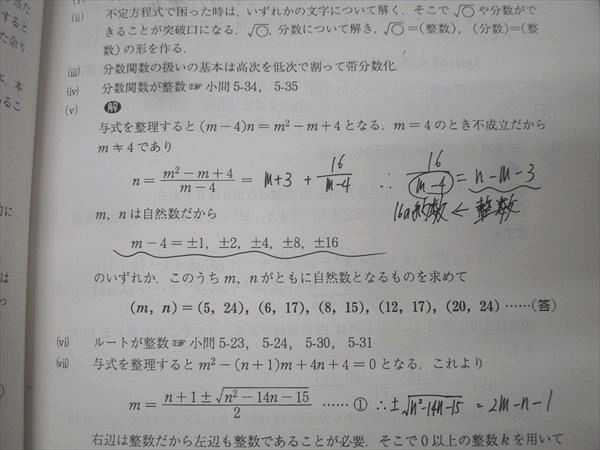 (ii) 不定方程式で困った時は，いずれかの文字について解く．そこで√○や分数がで
きることが突破口になる．√○，分数について解き，√○＝(整数)，(分数)＝(整
数) の形を作る．
(iii) 分数関数の扱いの基本は高次を低次で割って帯分数化．
(iv) 分数関数が整数 ☞ 小問 5-34， 5-35
(v) 解
与式を整理すると (m－4)n＝m²－m＋4 となる．m＝4 のとき不成立だから
m≠4 であり
n＝(m²－m＋4)/(m－4) = m+3 + 16/(m-4) ∴ 16/(m-4) = n-m-3
m，n は自然数だから 16の約数 ← 整数
m－4＝±1，±2，±4，±8，±16
のいずれか．このうち m，n がともに自然数となるものを求めて
(m，n)＝(5，24)，(6，17)，(8，15)，(12，17)，(20，24) ……(答)
(vi) ルートが整数 ☞ 小問 5-23， 5-24， 5-30， 5-31
(vii) 与式を整理すると m²－(n＋1)m＋4n＋4＝0 となる．これより
m＝(n＋1±√(n²－14n－15))/2 …… ① ∴ ±√(n²-14n-15) = 2m-n-1
右辺は整数だから左辺も整数であることが必要．そこで 0 以上の整数 k を用いて